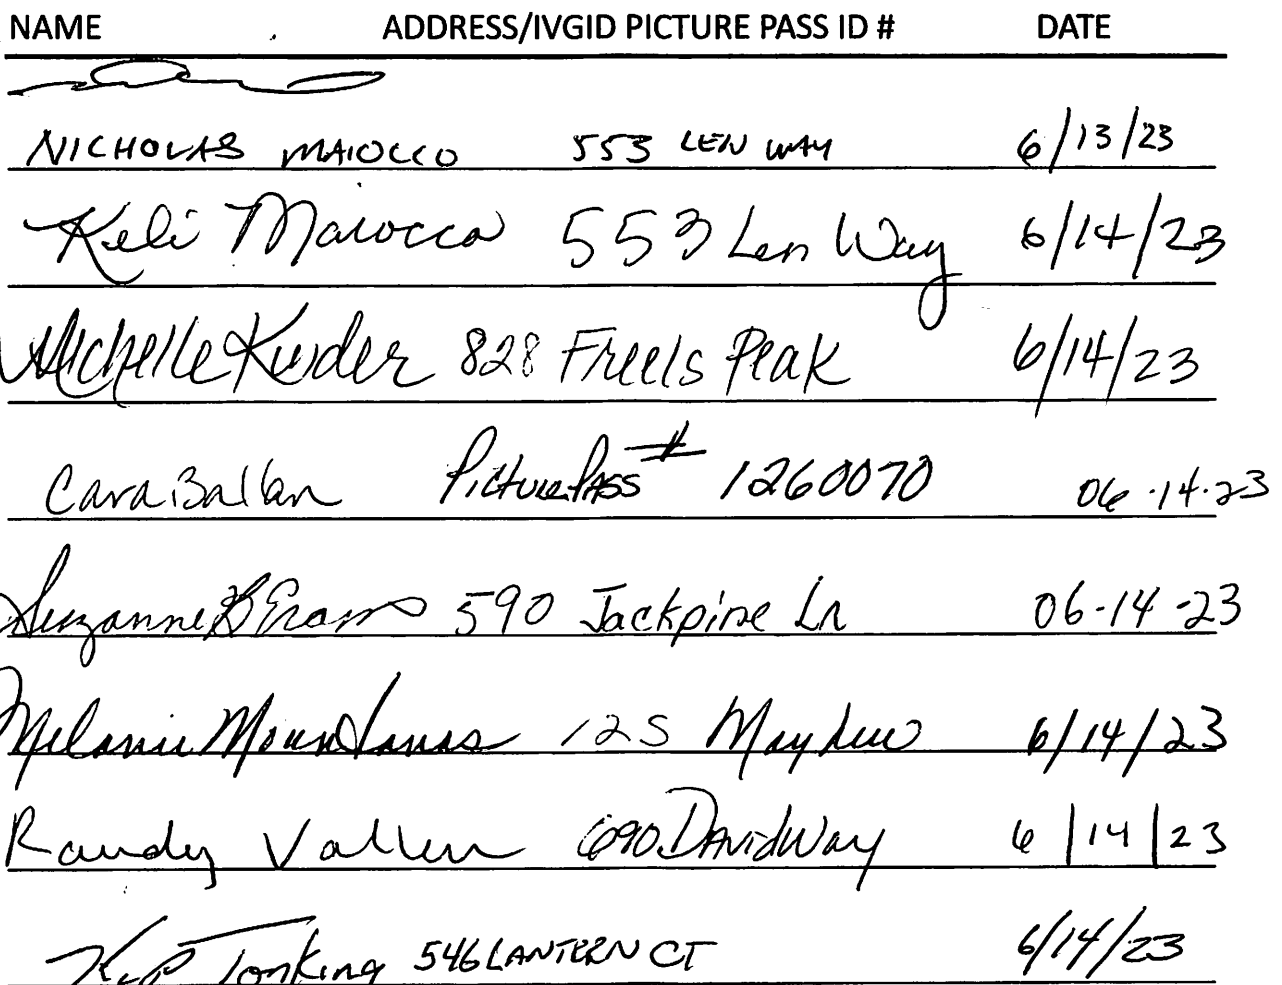 NAME ADDRESS/IVGID PICTURE PASS ID # DATE
NICHOLAS MAIOCCO 553 LEN WAY 6/13/23
Keli Maiocco 553 Len Way 6/14/23
Michelle 828 Freels Peak 6/14/23
Cara Picture Pass # 1260070 06-14-23
Suzanne B 590 Jackpine Ln 06-14-23
Melanie 125 Mayhew 6/14/23
Randy 690 David Way 6/14/23
Tonking 546 LANTERN CT 6/14/23